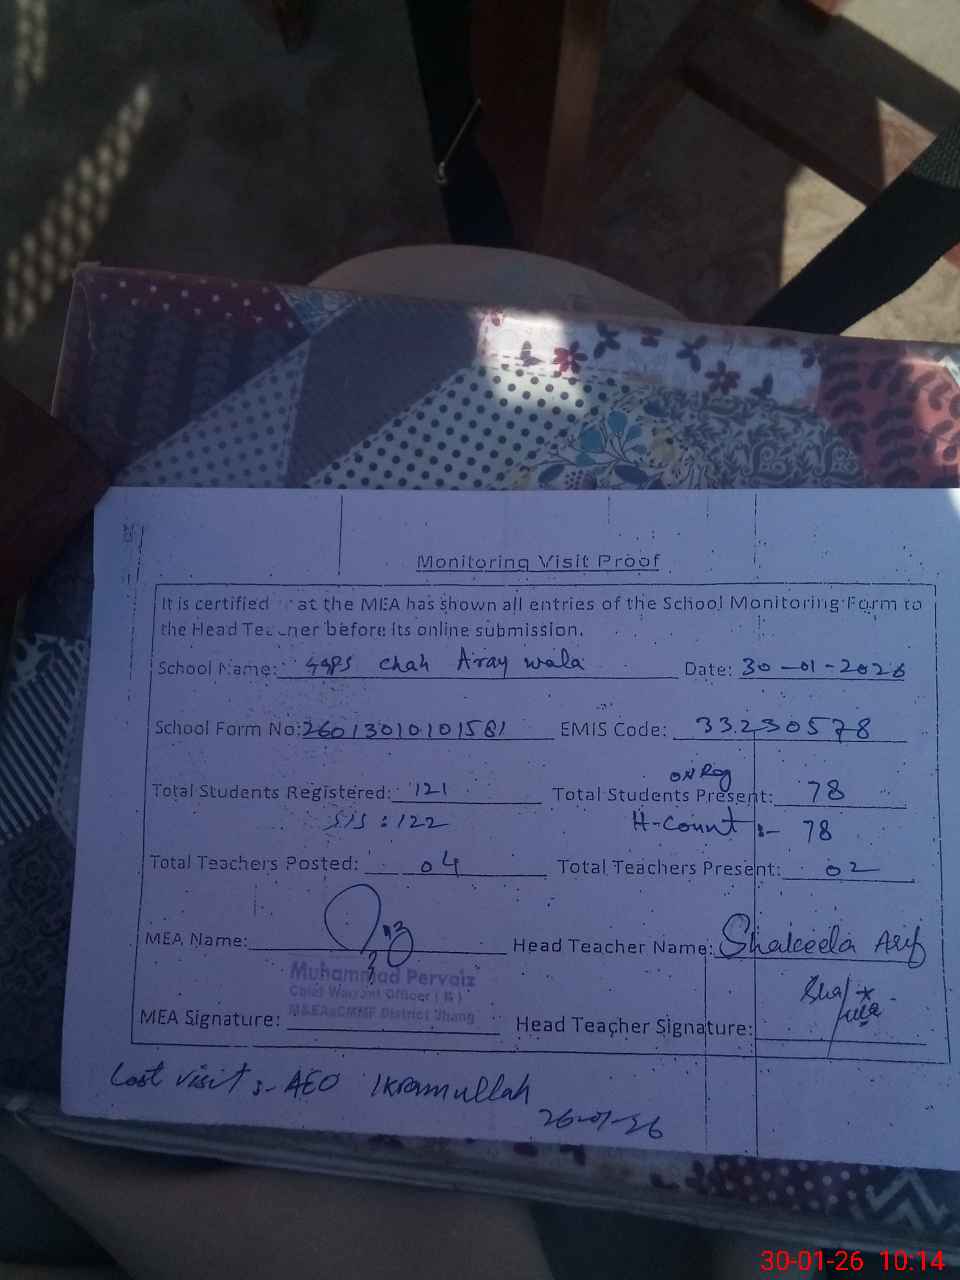 Monitoring Visit Proof
It is certified at the MEA has shown all entries of the School Monitoring Form to
the Head Teacher before its online submission.
School Name: GGPS Chah Aray wala Date: 30-01-2026
School Form No: 26013010101581 EMIS Code: 33230578
on Reg
Total Students Registered: 121 Total Students Present: 78
SIS : 122 H-Count :- 78
Total Teachers Posted: 04 Total Teachers Present: 02
MEA Name: Head Teacher Name: Shakeela Arif
Muhammad Pervaiz
Chief Warrant Officer ( R )
MEA Signature: M&EA, CMMF District Jhang Head Teacher Signature:
Last visit :- AEO Ikramullah
26-01-26
30-01-26 10:14